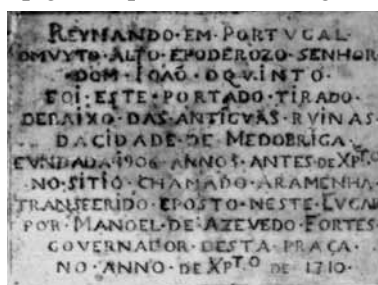 REYNANDO·EM·PORTVGAL·
OMVYTO·ALTO·EPODEROZO·SENHOR
·DOM·IOAÕ·DQVINTO·
FOI·ESTE·PORTADO·TIRADO·
DEBAIXO·DAS·ANTIGVAS·RVINAS·
DACIDADE·DE·MEDOBRIGA·
FVNDADA·1906·ANNOS·ANTES·DE XPTO
·NO·SITIO·CHAMADO·ARAMENHA·
TRANSFERIDO·EPOSTO·NESTE·LVGAR
·POR·MANOEL·DE·AZEVEDO·FORTES·
GOVERNADOR·DESTA·PRAÇA·
NO·ANNO·DE XPT.O DE 1710·